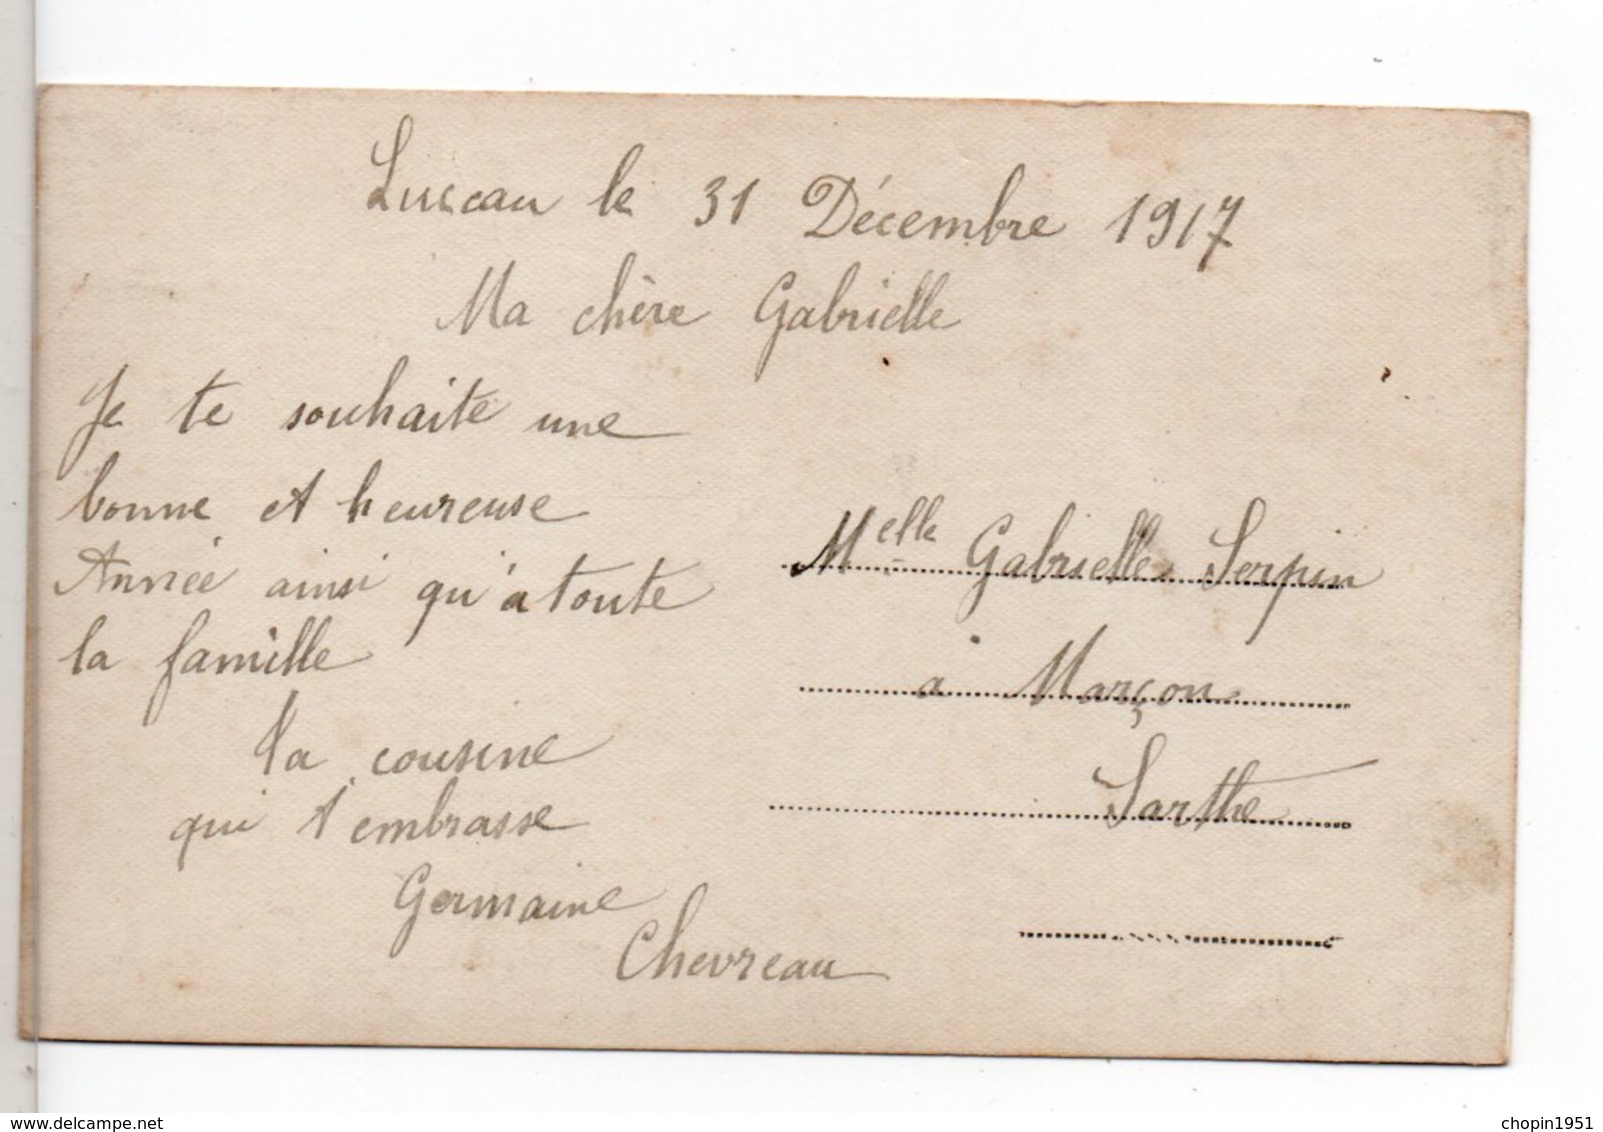 Luceau le 31 Décembre 1917
Ma chère Gabrielle
Je te souhaite une
bonne et heureuse
Année ainsi qu'à toute
la famille
Ta cousine
qui t'embrasse
Germaine
Chevreau
Melle Gabrielle Serpin
à Marçon
Sarthe
www.delcampe.net
chopin1951